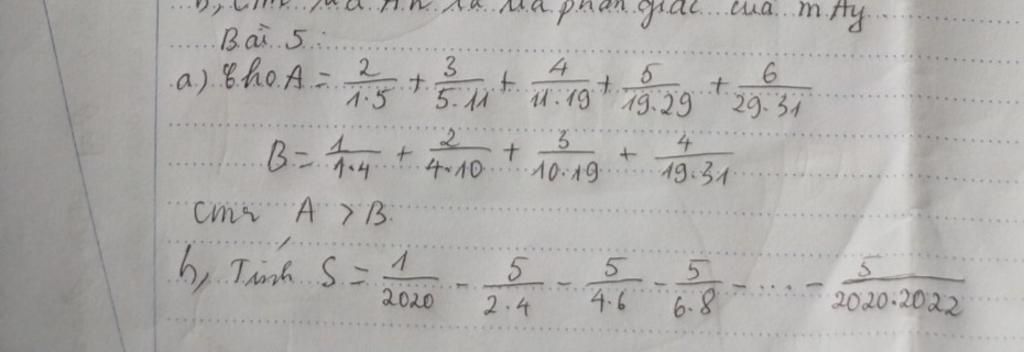 b, Cmr là phân giác của mAy
Bài 5:
a) Cho A = 2/1.5 + 3/5.11 + 4/11.19 + 5/19.29 + 6/29.31
B = 1/1.4 + 2/4.10 + 3/10.19 + 4/19.31
Cmr A > B.
b, Tính S = 1/2020 - 5/2.4 - 5/4.6 - 5/6.8 - .... - 5/2020.2022